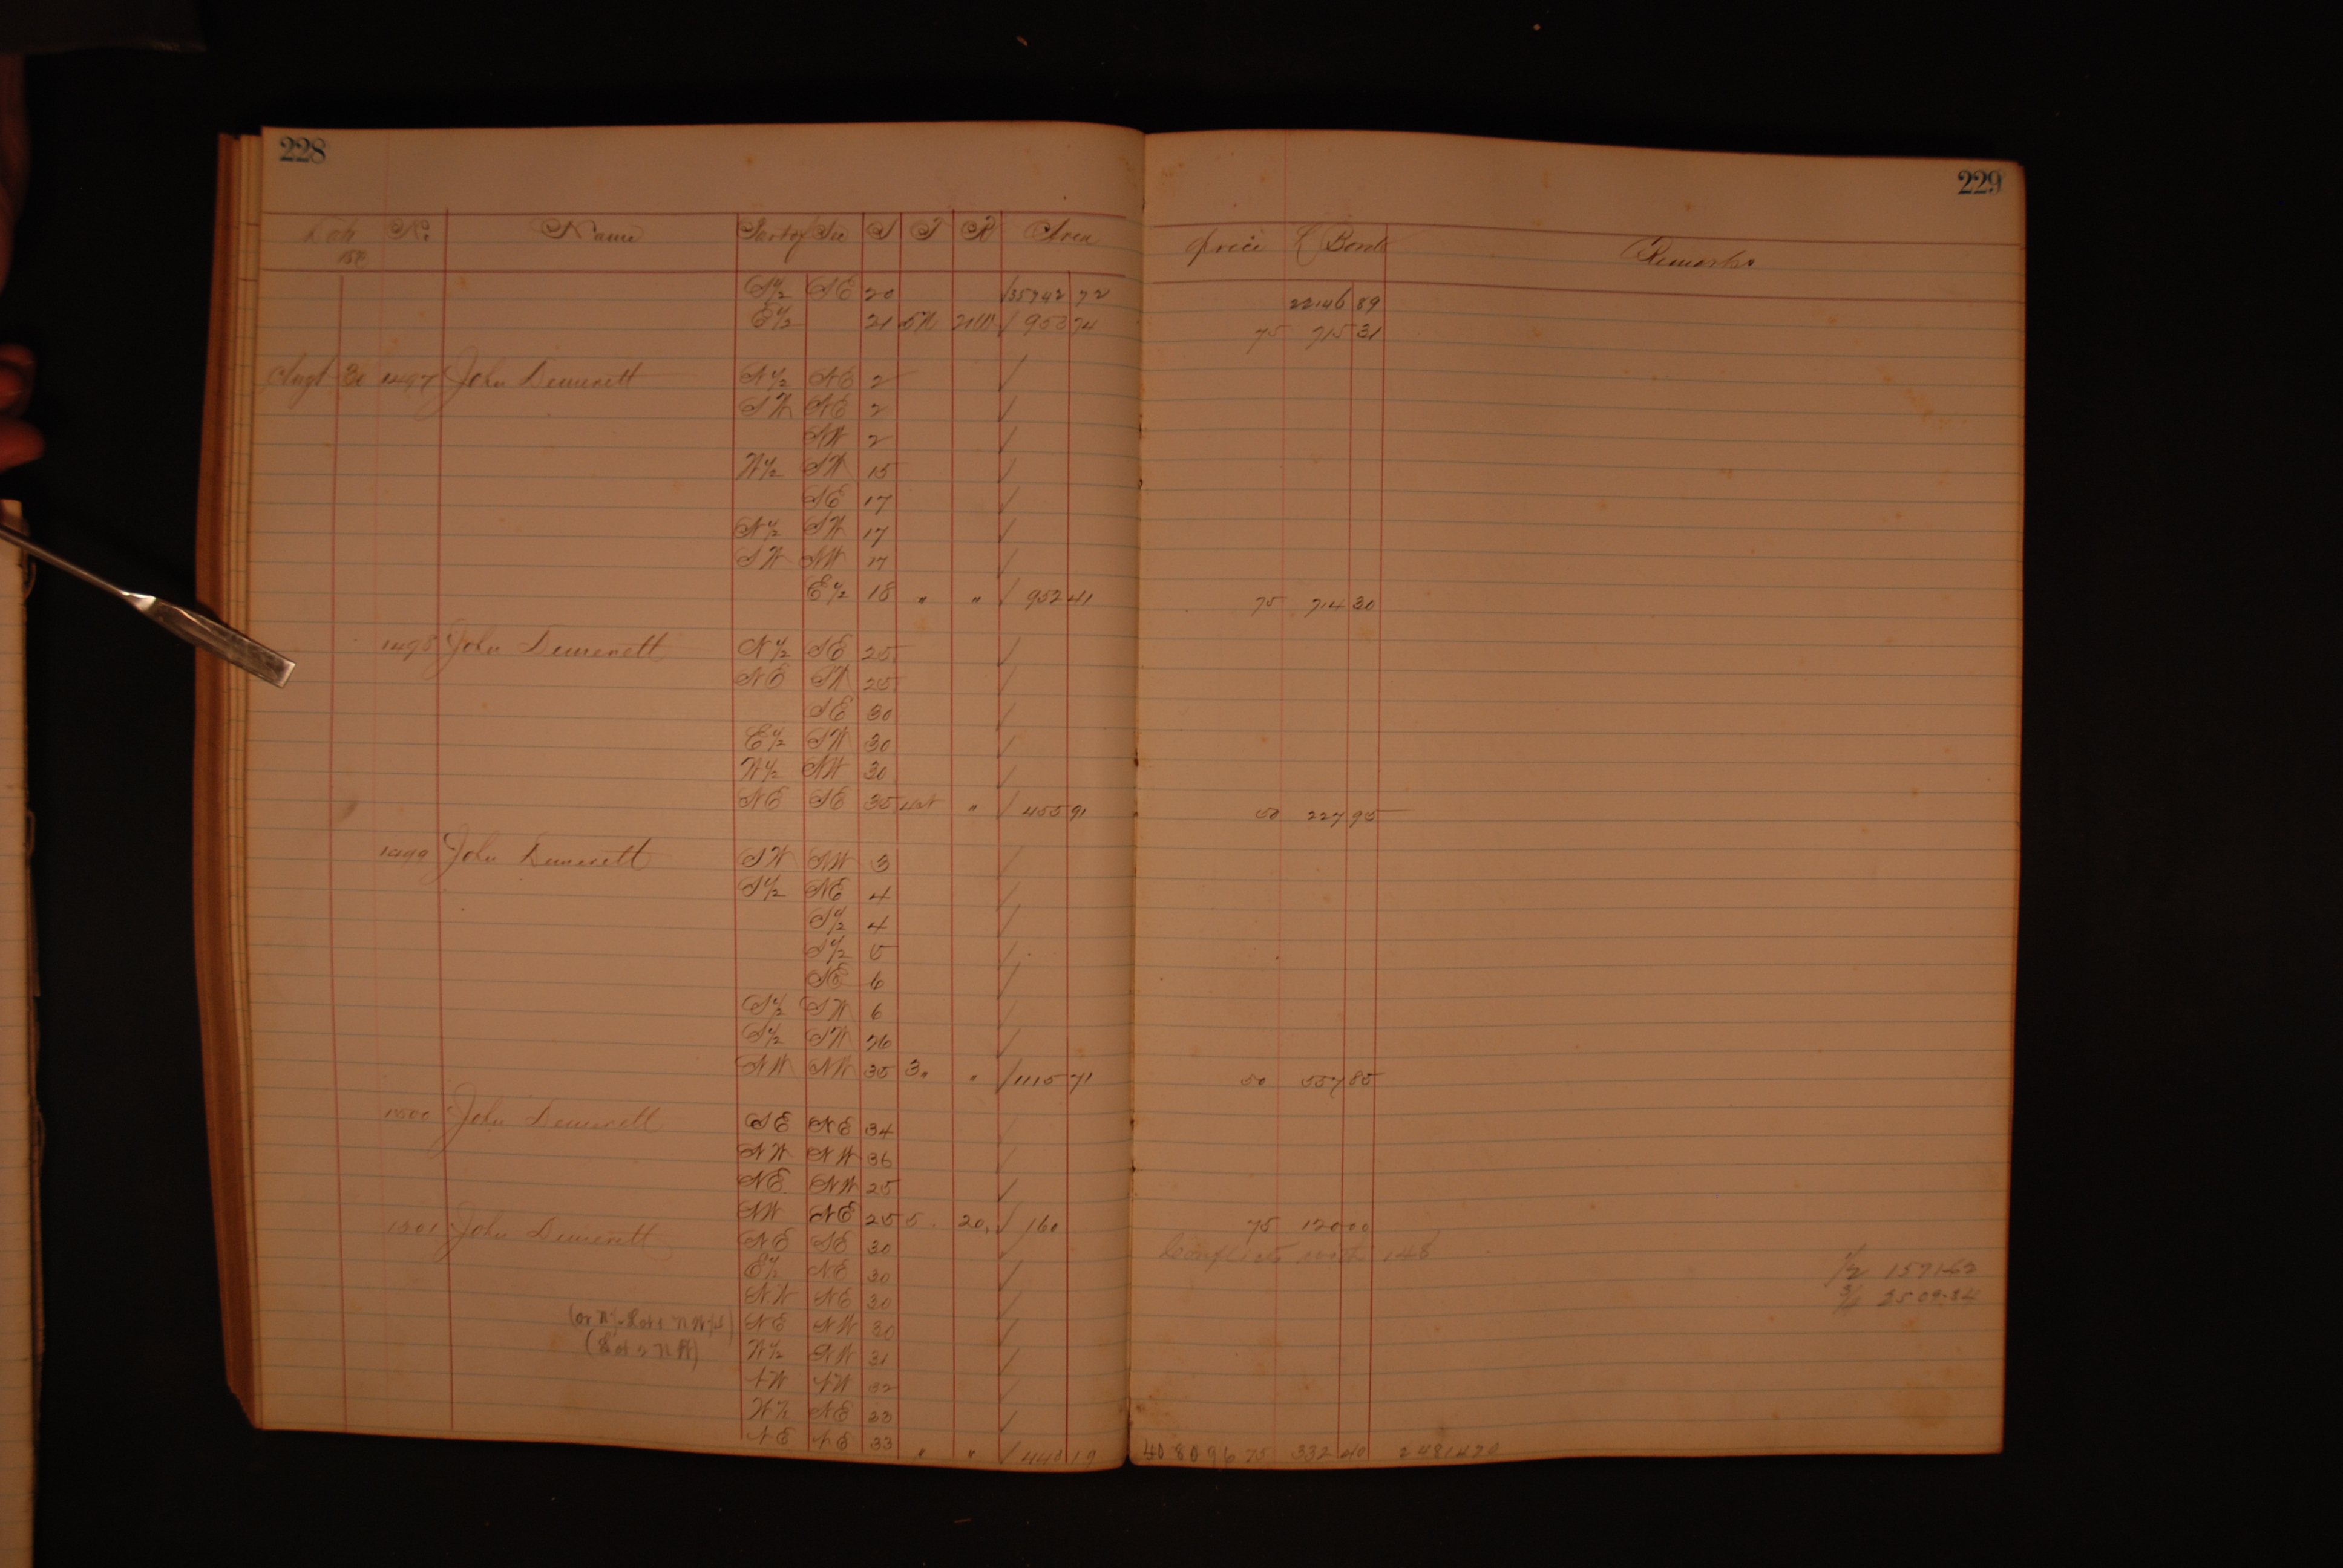 228
229
Date No. Name Part of Sec S T R Area Price Bond Remarks
188
S½ SE 20 35742 72 22146 89
E½ 21 5N 21W 953 74 75 715 31
Augt 30 1497 John Demerett N½ NE 2
SW NE 2
NW 2
W½ SW 15
SE 17
N½ SW 17
SW NW 17
E½ 18 " " 952 41 75 714 30
1498 John Demerett N½ SE 25
NE SW 25
SE 30
E½ SW 30
W½ NW 30
NE SE 35 4N " 455 91 50 227 95
1499 John Demerett SW NW 3
S½ NE 4
S½ 4
S½ 5
SE 6
S½ SW 6
S½ SW 26
NW NW 35 3" " 1115 71 50 557 85
1500 John Demerett SE NE 34
NW NW 36
NE NW 25
NW NE 25 5 " 20 " 160 75 120 00
1501 John Demerett NE SE 30
Conflicts with 148
E½ NE 30
½ 15716?
NW NE 30
¾ 2509.34
NE NW 30
W½ NW 31
NW NW 32
W½ NE 33
NE NE 33 " " 440 19 408096 75 332 40 2481420